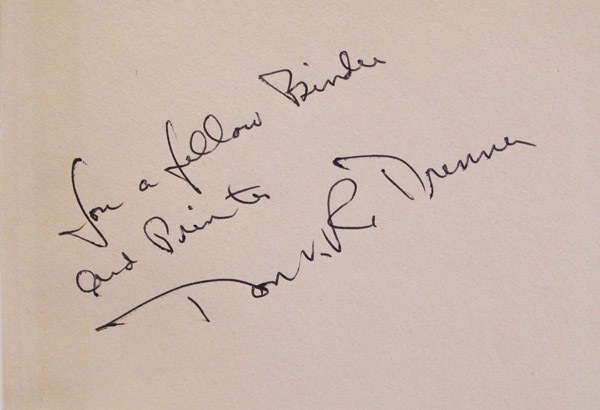 For a fellow Binder
and Printer
Don v. R. Drenner